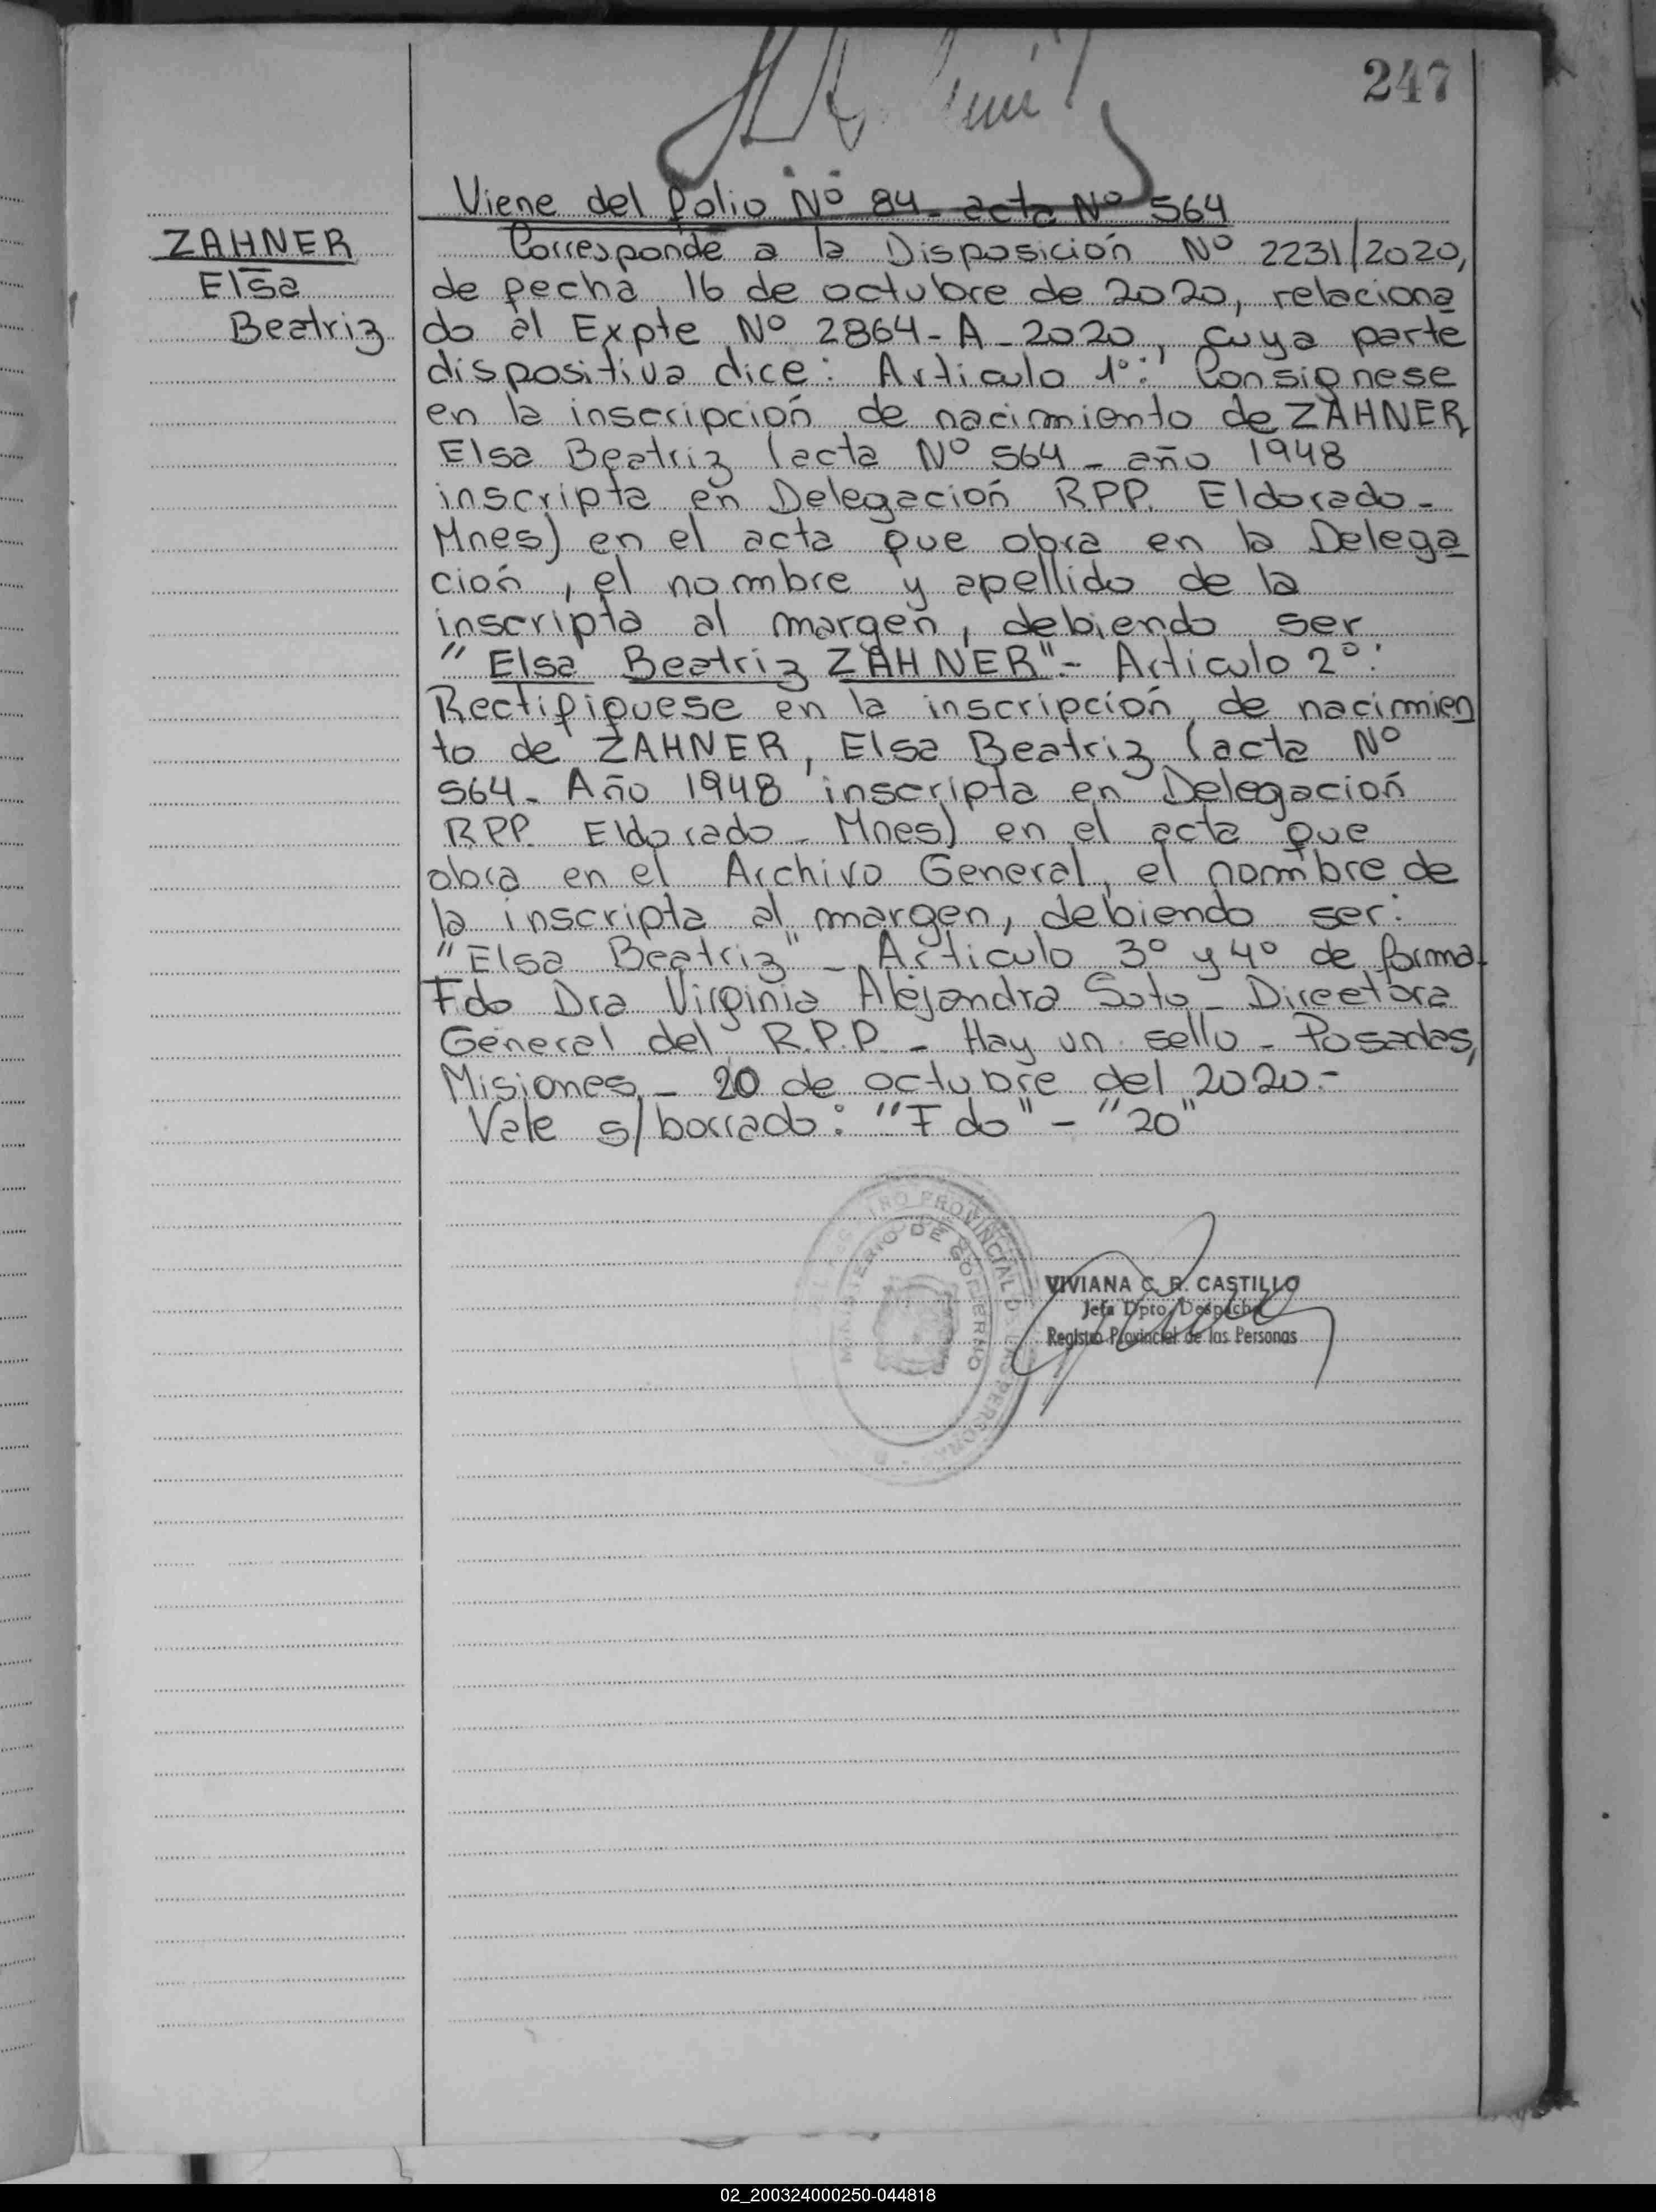 247
Viene del folio Nº 84- acta Nº 564
ZAHNER
Elsa
Beatriz
Corresponde a la Disposición Nº 2231/2020,
de fecha 16 de octubre de 2020, relaciona
do al Expte Nº 2864-A-2020, cuya parte
dispositiva dice: Articulo 1º: Consignese
en la inscripción de nacimiento de ZAHNER
Elsa Beatriz (acta Nº 564 - año 1948
inscripta en Delegación RPP. Eldorado-
Mnes) en el acta que obra en la Delega
ción, el nombre y apellido de la
inscripta al margen, debiendo ser
"Elsa Beatriz ZAHNER"- Articulo 2º:
Rectifiquese en la inscripción, de nacimien
to de ZAHNER, Elsa Beatriz (acta Nº
564- Año 1948 inscripta en Delegación
RPP. Eldorado - Mnes) en el acta que
obra en el Archivo General, el nombre de
la inscripta al margen, debiendo ser:
"Elsa Beatriz" - Articulo 3º y 4º de forma-
Fdo Dra Virginia Alejandra Soto - Directora
General del R.P.P. - Hay un sello - Posadas,
Misiones - 20 de octubre del 2020.-
Vale s/borrado: "Fdo" - "20"
REGISTRO PROVINCIAL DE LAS PERSONAS
MINISTERIO DE GOBIERNO
VIVIANA C. R. CASTILLO
Jefa Dpto. Despacho
Registro Provincial de las Personas
02_200324000250-044818